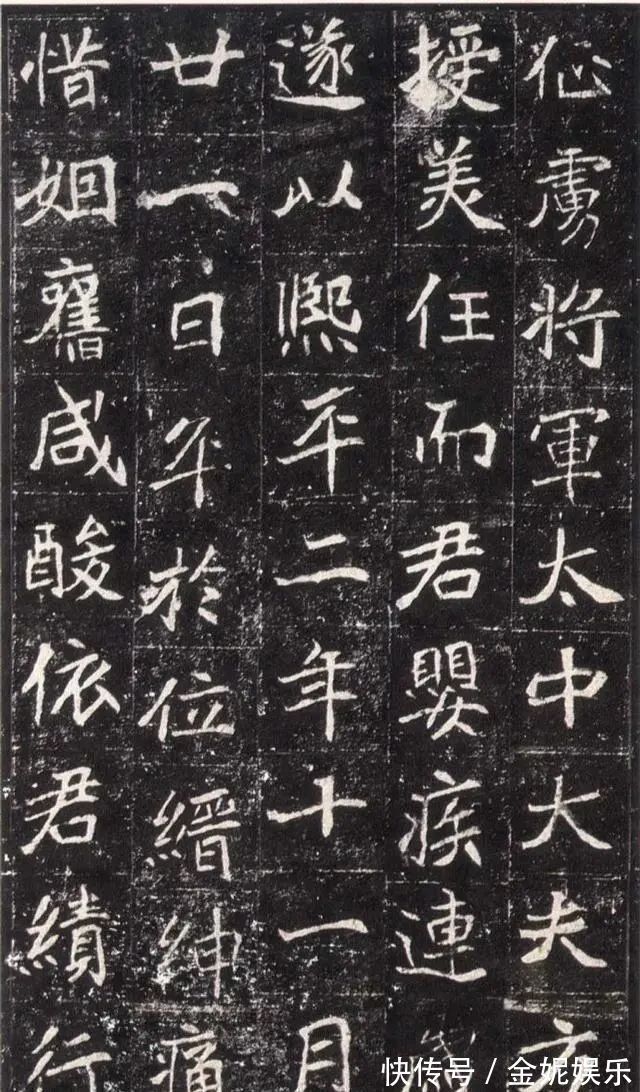 征虜将軍太中大夫方
授美任而君嬰疾連
遂以熙平二年十一月
廿一日卒於位縉紳痛
惜姻舊咸酸依君績行
快传号/金妮娱乐